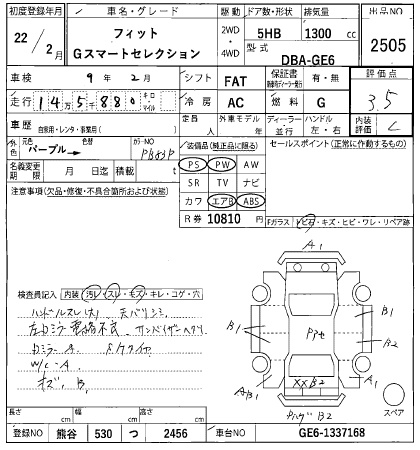 初度登録年月 車名・グレード 駆動 ドア数・形状 排気量 出品NO
22/2月 フィット Gスマートセレクション 2WD・4WD 5HB 1300 cc 2505
型式 DBA-GE6
車検 9年 2月 シフト FAT 保証書 有・無 評価点
走行 145880 キロ・マイル 冷房 AC 燃料 G 3.5
車歴 自家用・レンタ・事業用( ) 定員 人 外車モデル 年 ディーラー・並行 ハンドル 左・右 内装評価 C
外色 元色 パープル→ 色替 カラーNO PB83P
装備品(純正品に限る) セールスポイント(正常に作動するもの)
名義変更期限 月 日迄 積載 t
PS PW AW
SR TV ナビ
カワ エアB ABS
注意事項(欠品・修復・不具合箇所および状態)
R券 10810 円 Fガラス トビ石・キズ・ヒビ・ワレ・リペア跡
検査員記入 内装 汚レ・スレ・モズ・キレ・コゲ・穴
ハンドルスレ(大)
W/C-A
キズ、B、
A1
B1
B1
B2
AB1
A1
XXB2
B2
スペア
長さ cm 幅 cm 高さ cm
登録NO 熊谷 530 つ 2456 車台NO GE6-1337168